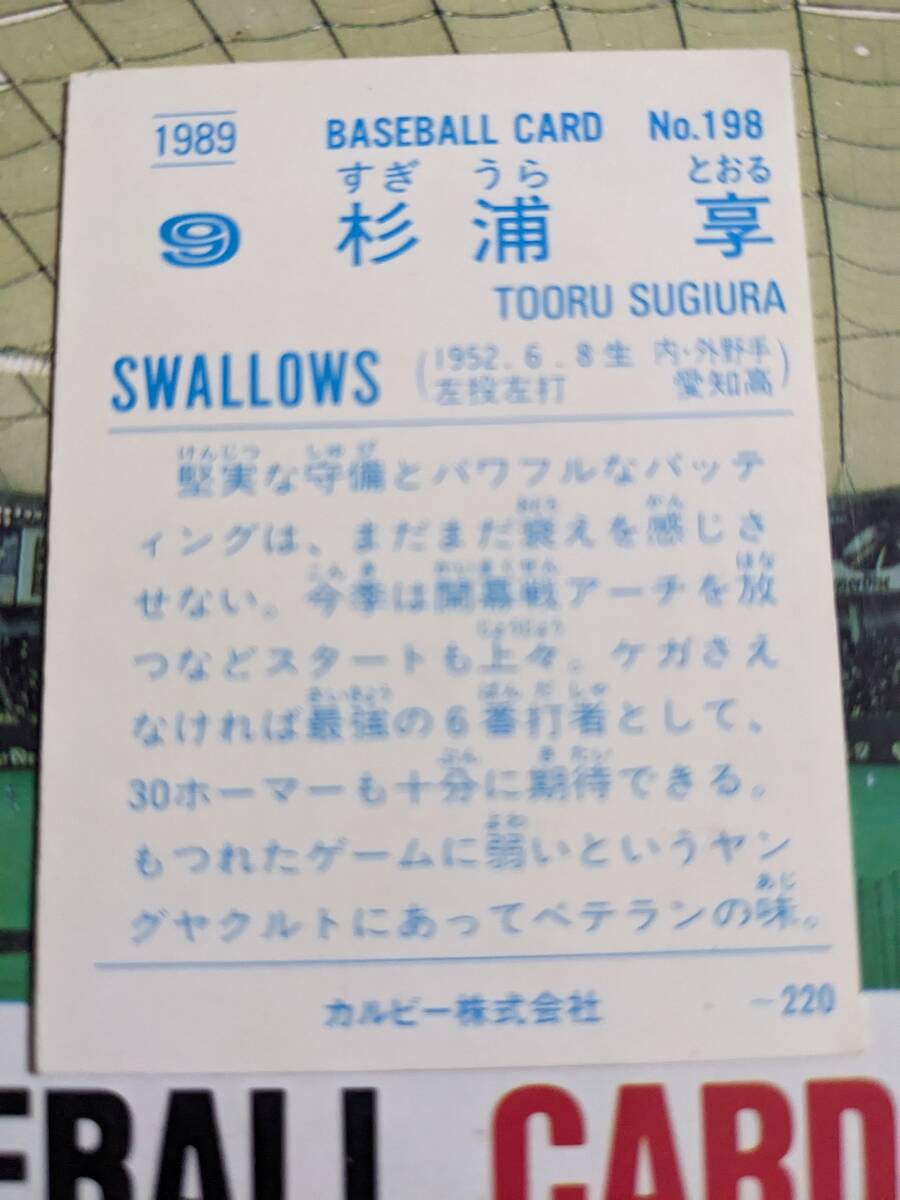 1989 BASEBALL CARD No.198
すぎ うら とおる
9 杉浦 享
TOORU SUGIURA
SWALLOWS
(1952.6.8生 内・外野手
左投左打 愛知高)
けんじつ しゅび
堅実な守備とパワフルなバッテ
おとろ かん
ィングは、まだまだ衰えを感じさ
こんき かいまくせん はな
せない。今季は開幕戦アーチを放
じょうじょう
つなどスタートも上々。ケガさえ
さいきょう ばんだしゃ
なければ最強の6番打者として、
ぶん きたい
30ホーマーも十分に期待できる。
よわ
もつれたゲームに弱いというヤン
あじ
グヤクルトにあってベテランの味。
カルビー株式会社 ~220
EBALL CARD